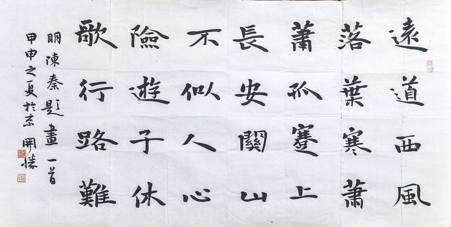 遠道西風
落葉寒蕭
蕭孤蹇上
長安關山
不似人心
險遊子休
歌行路難
明陳秦題畫一首
甲申之夏於京